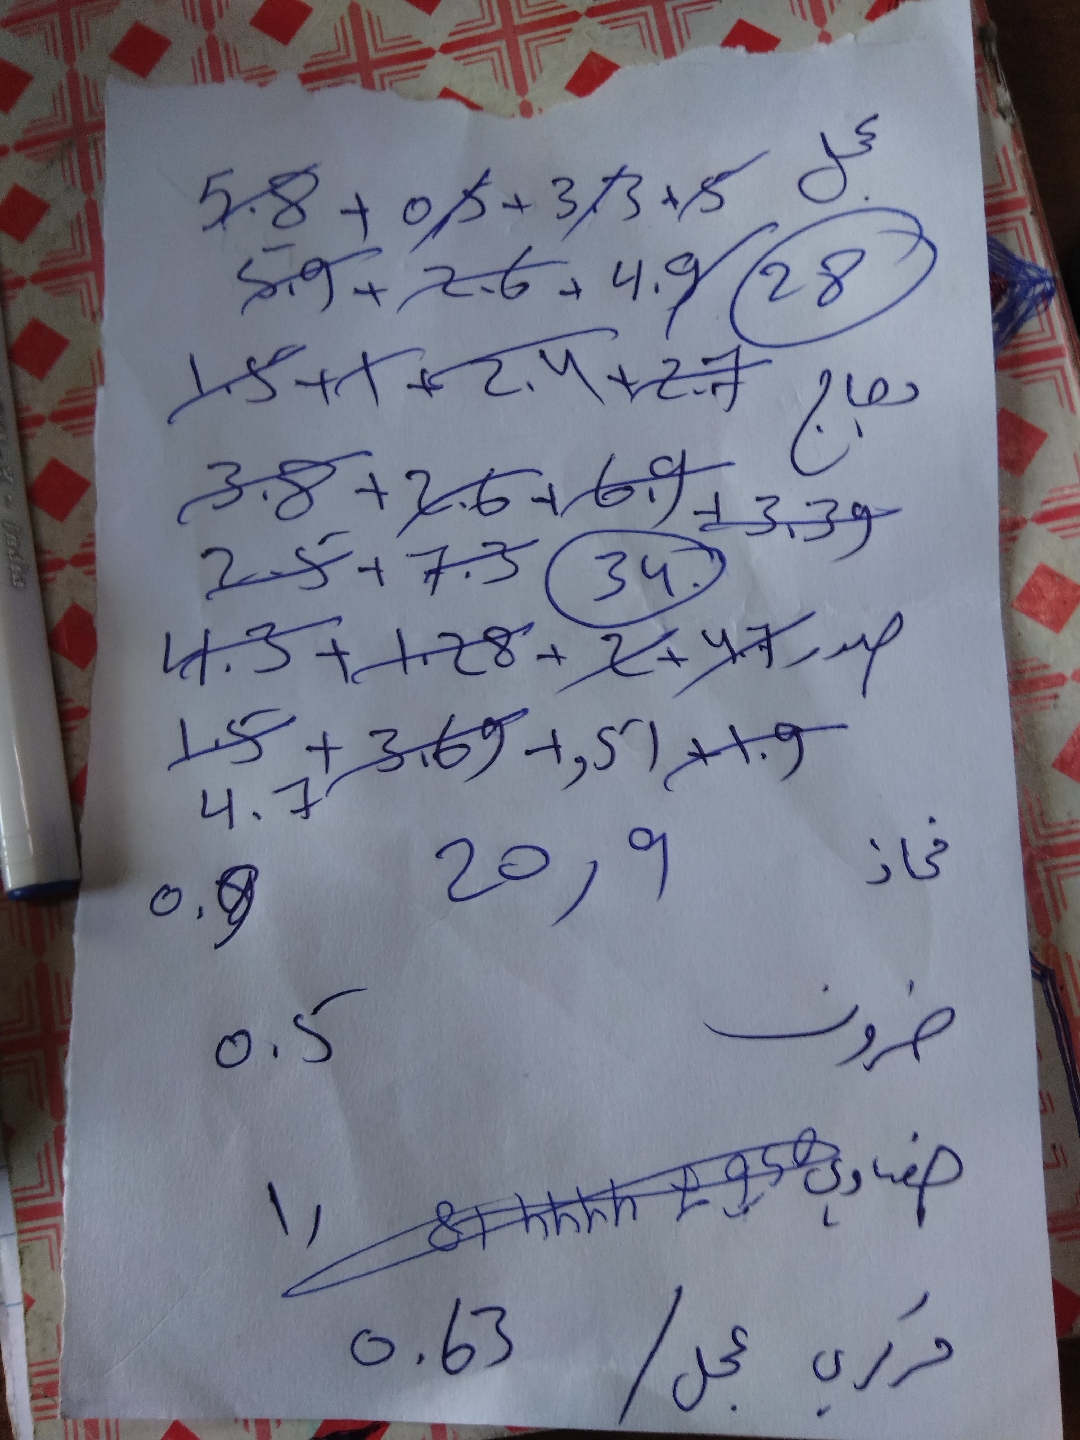 5.8 + 0.5 + 3.3 + 5 عجل
5.9 + 2.6 + 4.9 28
1.5 + 1 + 2.4 + 2.7 دجاج
3.8 + 2.6 + 6.9 + 3.39
2.5 + 7.3 34.
4.3 + 1.28 + 2 + 4.7 صدر
1.5 + 3.69 + ,51 + 1.9
4.7
0.9 20,9 فخاذ
0.5 خروف
1,
0.63 / عجل